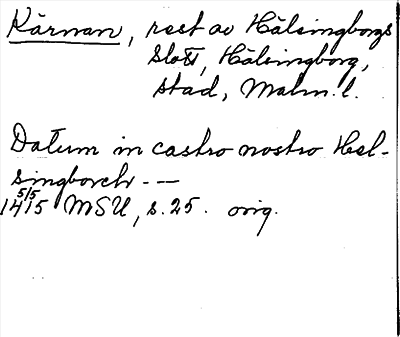 Kärnan, rest av Hälsingborgs
slott, Hälsingborg,
stad, Malm. l.
Datum in castro nostro Hel-
singborch - —
5/5
1415 MSU, s. 25. orig.